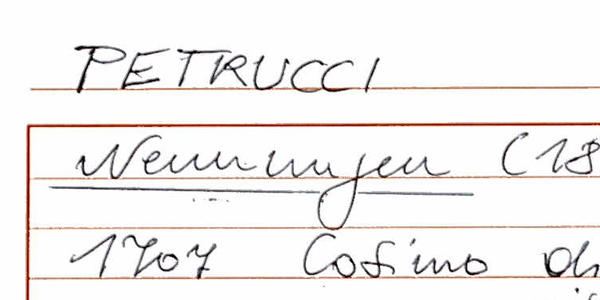 PETRUCCI
Nennungen (18
1707 Cosimo